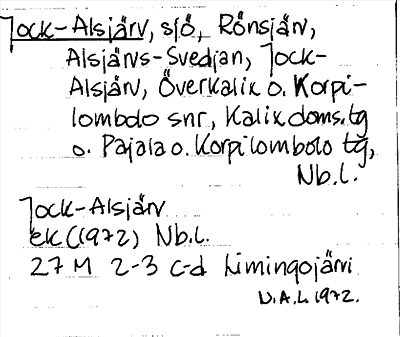 Jock-Alsjärv, sjö, Rönsjärv,
Alsjärvs-Svedjan, Jock-
Alsjärv, Överkalix o. Korpi-
lombolo snr, Kalix doms. tg
o. Pajala o. Korpilombolo tg,
Nb.l.
Jock-Alsjärv
ek (1972) Nb.l.
27 M 2-3 c-d Limingojärvi
U.A.L 1972.